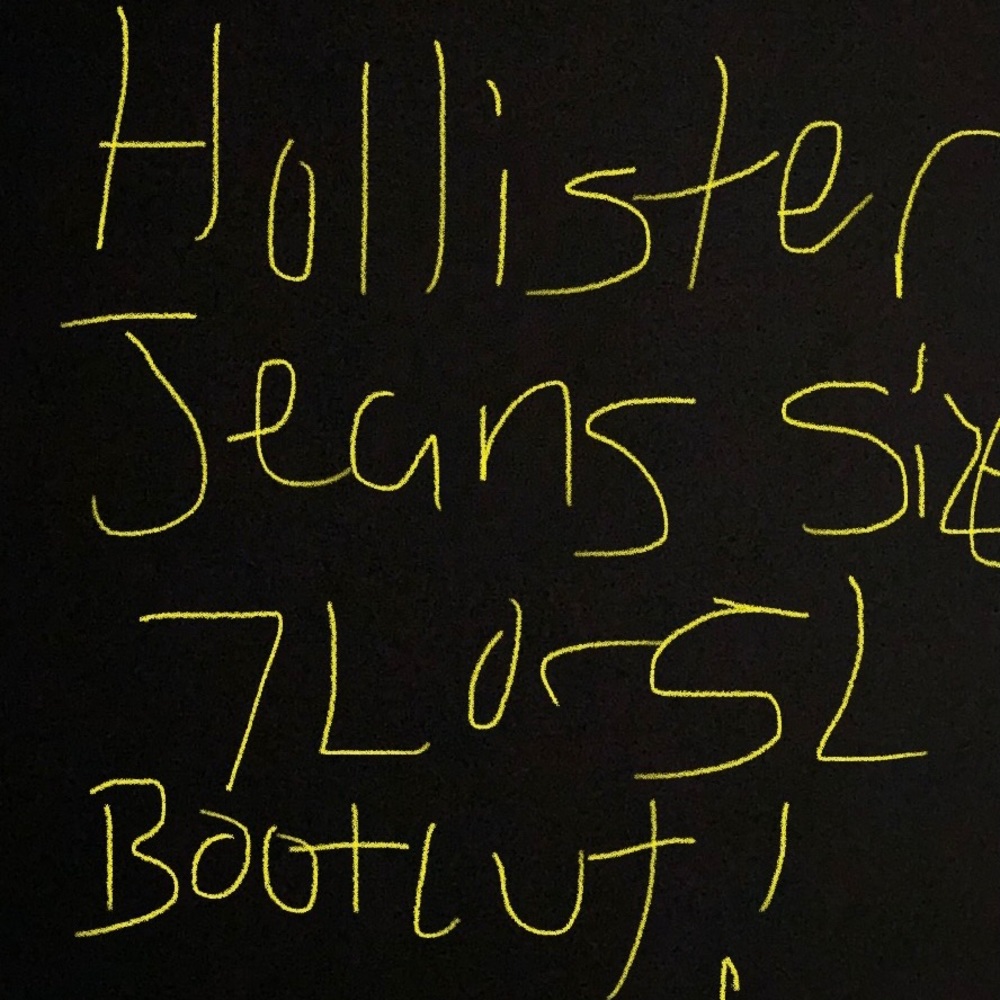 Hollister
Jeans size
7L or 5L
Bootcut!